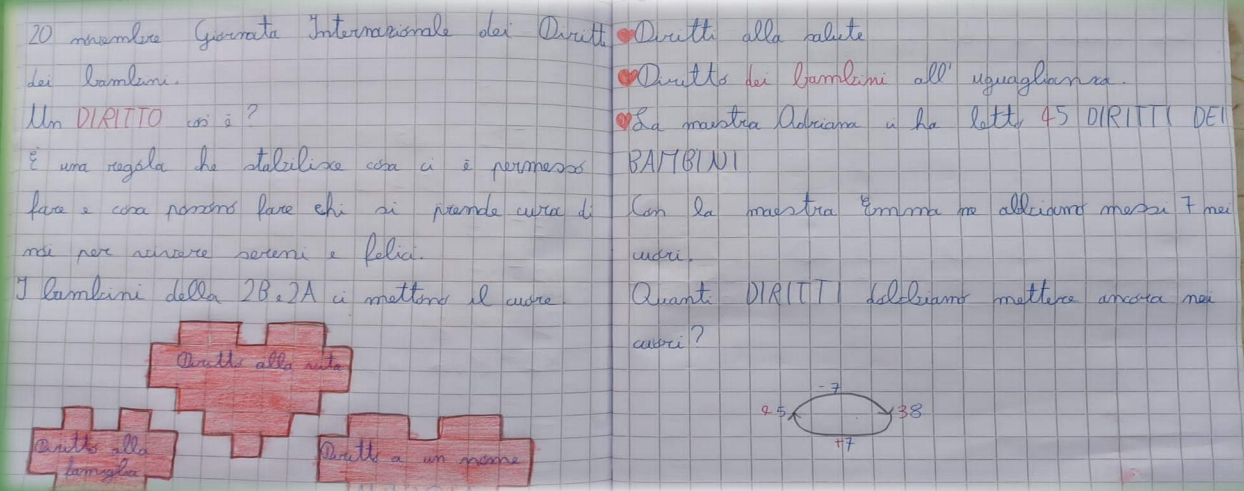 20 novembre Giornata Internazionale dei Diritti
dei bambini.
Un DIRITTO cos'è?
È una regola che stabilisce cosa ci è permesso
fare e cosa possono fare chi si prende cura di
noi per vivere sereni e felici.
I bambini della 2B e 2A ci mettono il cuore.
Diritto alla vita
Diritto alla
famiglia
Diritto a un nome
Diritti alla salute
Diritto dei bambini all'uguaglianza.
La maestra Adriana ci ha letto 45 DIRITTI DEI
BAMBINI
Con la maestra Emma ne abbiamo messi 7 nei
cuori.
Quanti DIRITTI dobbiamo mettere ancora nei
cuori?
-7
45 38
+7